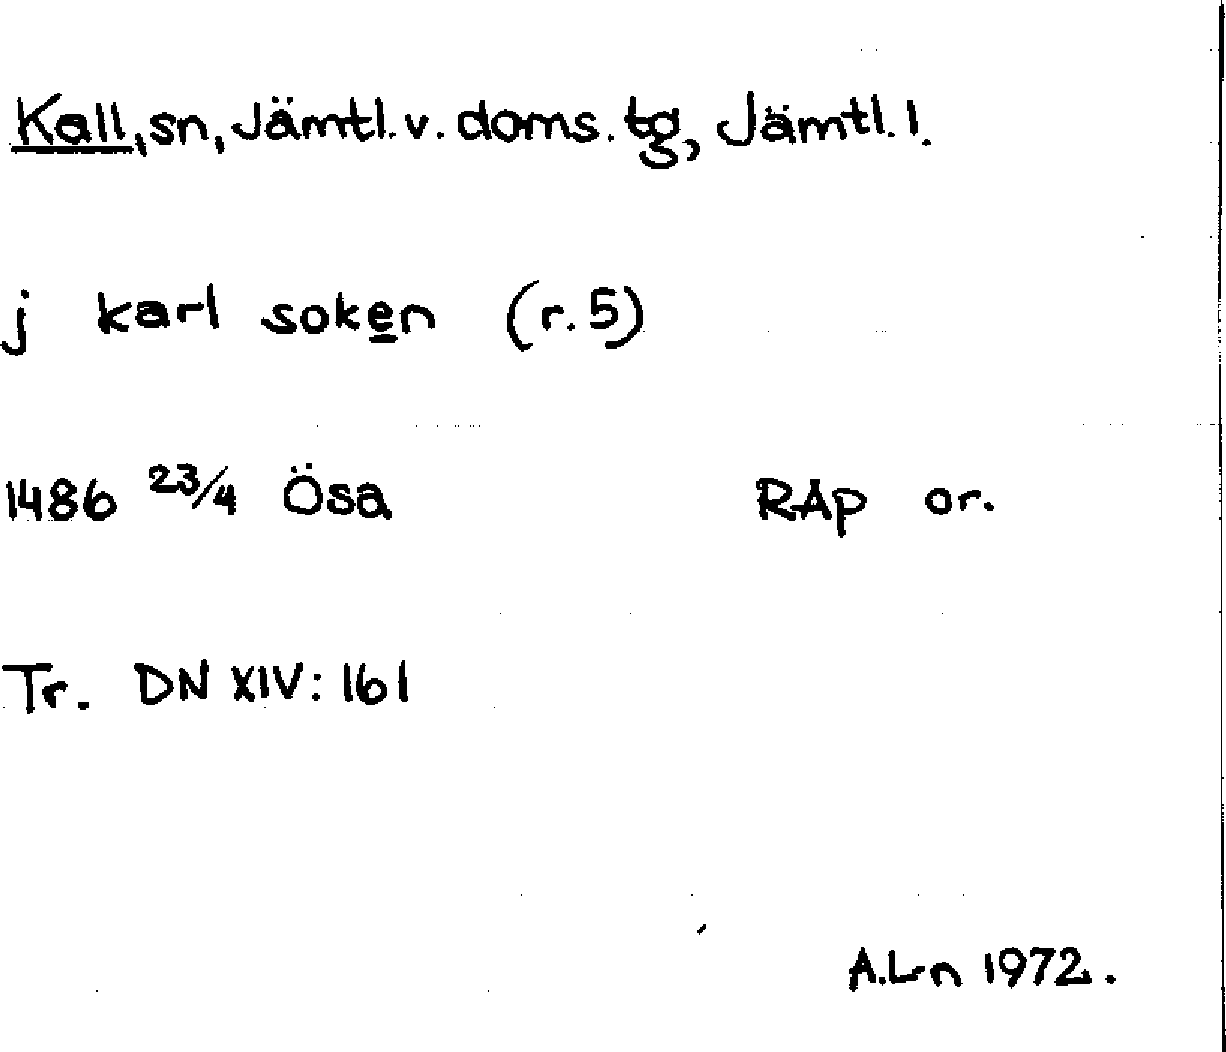 Kall, sn, Jämtl. v. doms. tg, Jämtl. l.
j karl soken (r. 5)
1486 23/4 Ösa RAp or.
Tr. DN XIV: 161
A.L-n 1972.